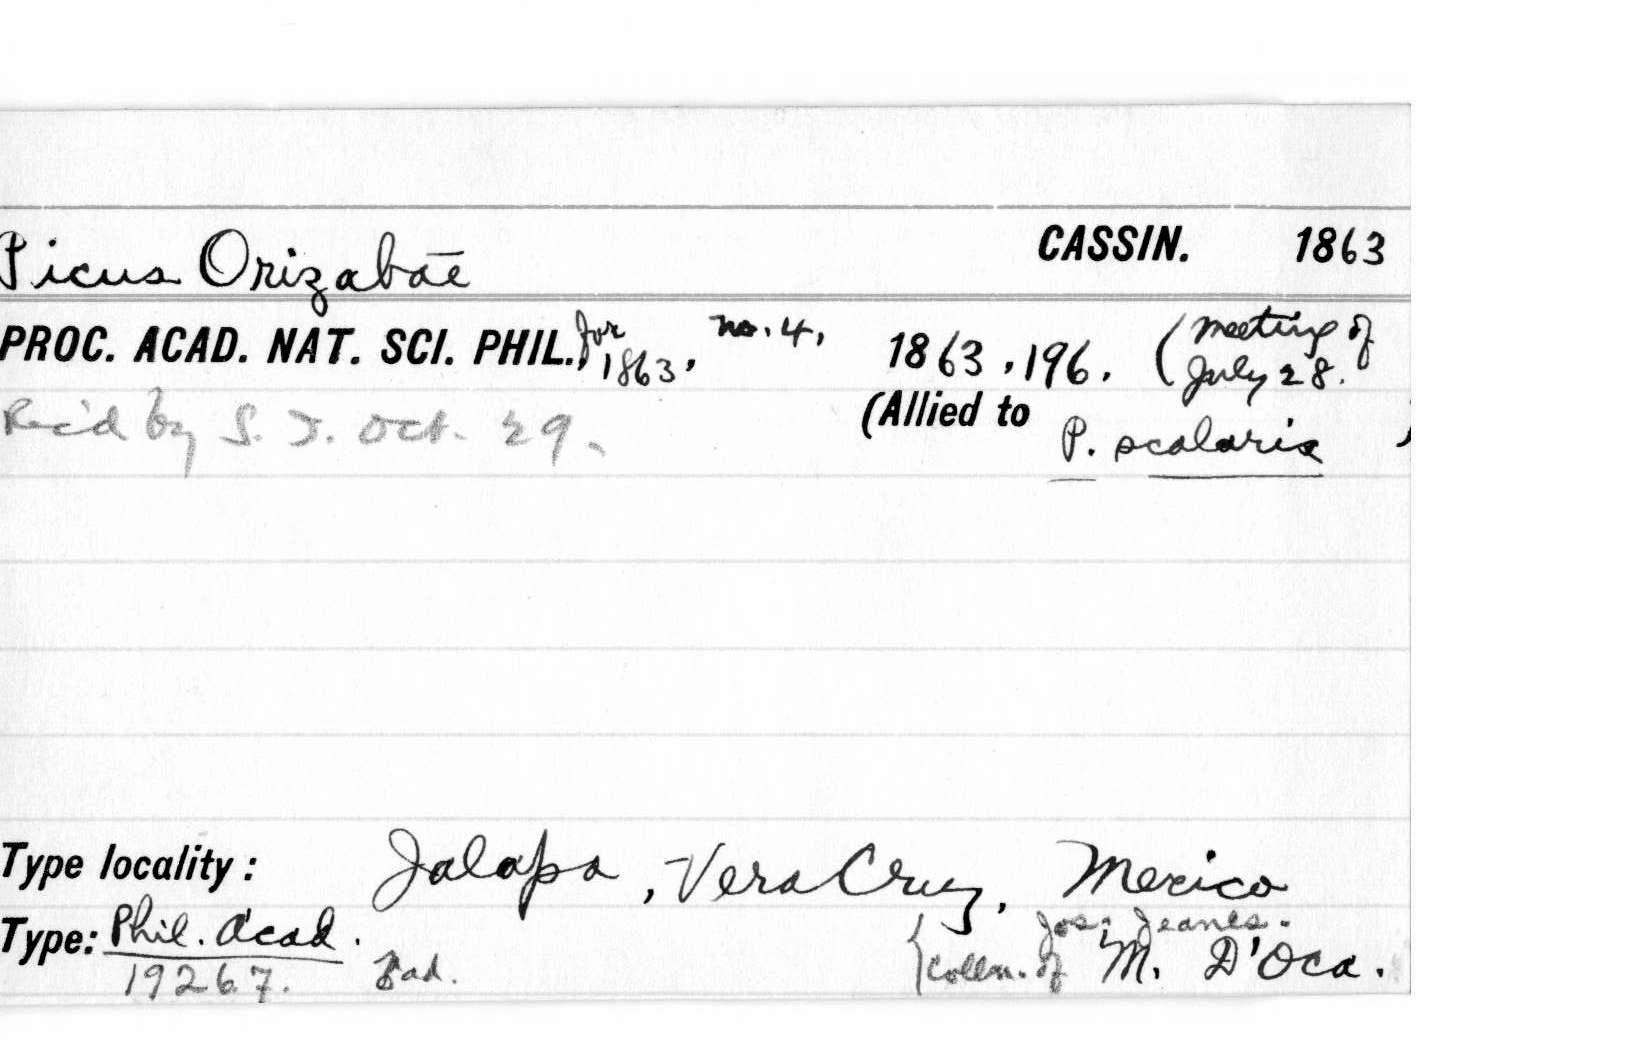 Picus Orizabae CASSIN. 1863
PROC. ACAD. NAT. SCI. PHIL., for 1863, no. 4, 1863, 196. (Meeting of July 28.
Rec'd by S. I. Oct. 29. (Allied to P. scalaris )
Type locality: Jalapa, Vera Cruz, Mexico
Type: Phil. Acad. Jos. Jeanes.
19267. Rad. {Colln. of M. D'Oca.